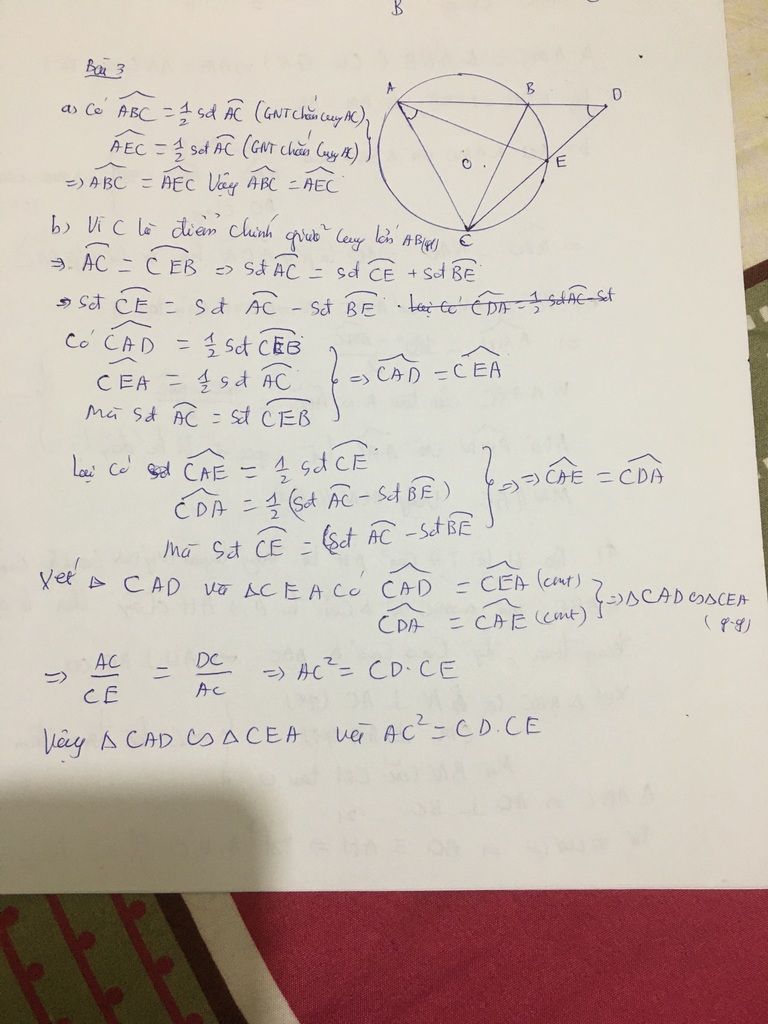 B
Bài 3
a) Có ABC = 1/2 sđ AC (GNT chắn cung AC)
AEC = 1/2 sđ AC (GNT chắn cung AC)
=> ABC = AEC Vậy ABC = AEC
A B D E O C
b) Vì C là điểm chính giữa cung lớn AB (gt)
=> AC = CEB => sđ AC = sđ CE + sđ BE
=> sđ CE = sđ AC - sđ BE . Lại có CDA = 1/2 sđ AC - sđ
Có CAD = 1/2 sđ CEB
CEA = 1/2 sđ AC
Mà sđ AC = sđ CEB
=> CAD = CEA
Lại có sđ CAE = 1/2 sđ CE
CDA = 1/2 (sđ AC - sđ BE)
Mà sđ CE = (sđ AC - sđ BE
=> => CAE = CDA
Xét Δ CAD và Δ CEA có CAD = CEA (cmt)
CDA = CAE (cmt)
=> Δ CAD ∽ Δ CEA
(g-g)
=> AC/CE = DC/AC => AC² = CD.CE
Vậy Δ CAD ∽ Δ CEA và AC² = CD.CE